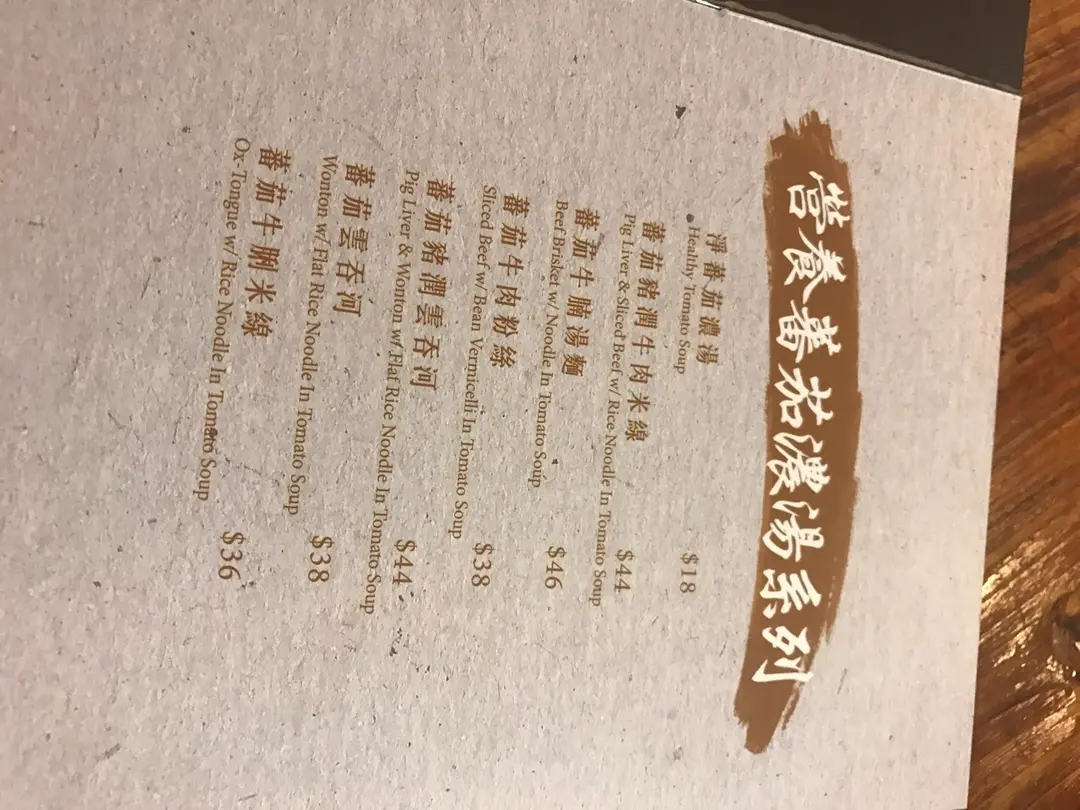 營養蕃茄濃湯系列
淨蕃茄濃湯
Healthy Tomato Soup $18
蕃茄豬潤牛肉米線
Pig Liver & Sliced Beef w/ Rice Noodle In Tomato Soup $44
蕃茄牛腩湯麵
Beef Brisket w/ Noodle In Tomato Soup $46
蕃茄牛肉粉絲
Sliced Beef w/ Bean Vermicelli In Tomato Soup $38
蕃茄豬潤雲吞河
Pig Liver & Wonton w/ Flat Rice Noodle In Tomato Soup $44
蕃茄雲吞河
Wonton w/ Flat Rice Noodle In Tomato Soup $38
蕃茄牛脷米線
Ox-Tongue w/ Rice Noodle In Tomato Soup $36